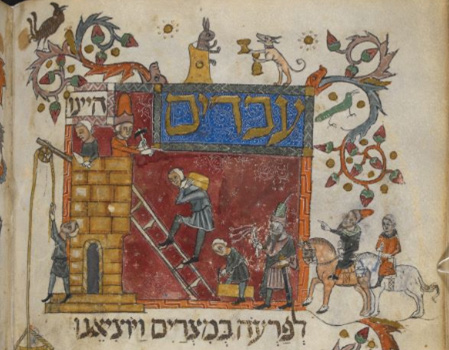 עבדים היינו
לפרעה במצרים ויוציאנו